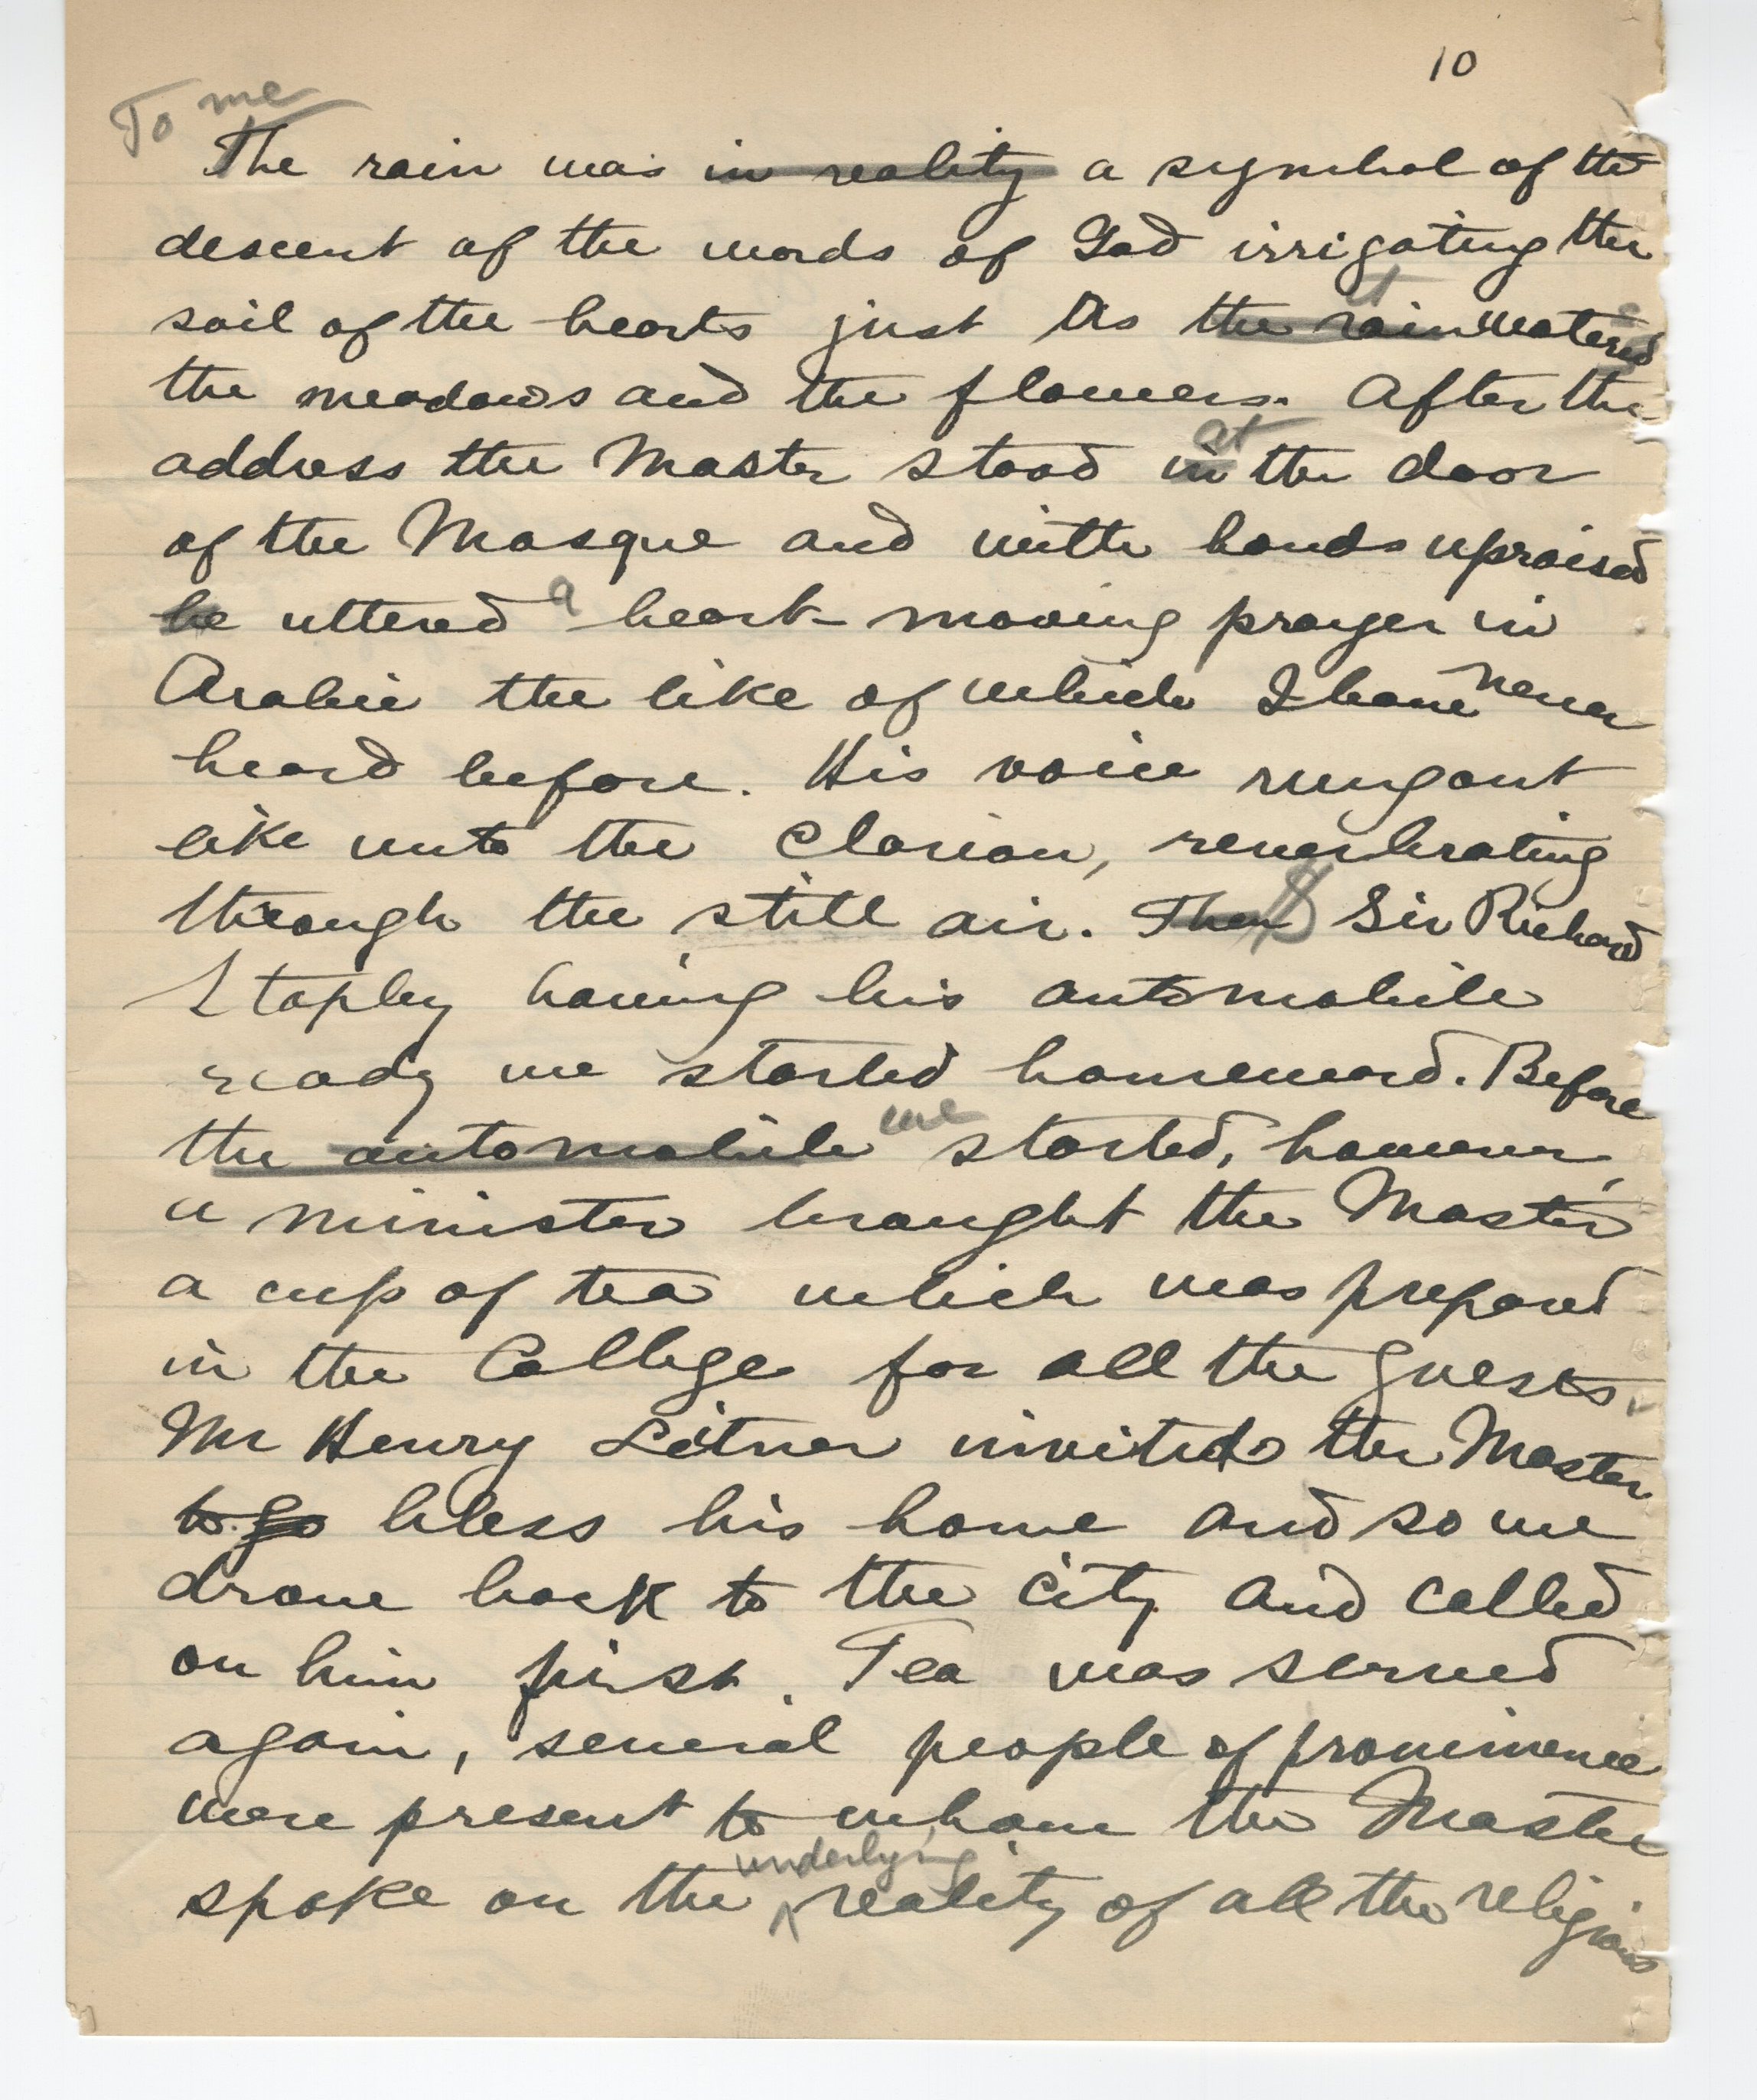 10
To me
The rain was in reality a symbol of the
descent of the words of God irrigating the
soil of the hearts just as the rain watered
it
the meadows and the flowers. After the
address the Master stood in the door
at
of the Mosque and with hands upraised
he uttered a heart-moving prayer in
Arabic the like of which I have never
heard before. His voice rung out
like unto the Clarion, reverberating
through the still air. Then Sir Richard
Stapley having his automobile
ready we started homeward. Before
the automobile we started, however,
a minister brought the Master
a cup of tea which was prepared
in the College for all the guests.
Mr Henry Leitner invited the Master
to go bless his home and so we
drove back to the city and called
on him first. Tea was served
again, several people of prominence
were present to whom the Master
underlying
spoke on the reality of all the religions